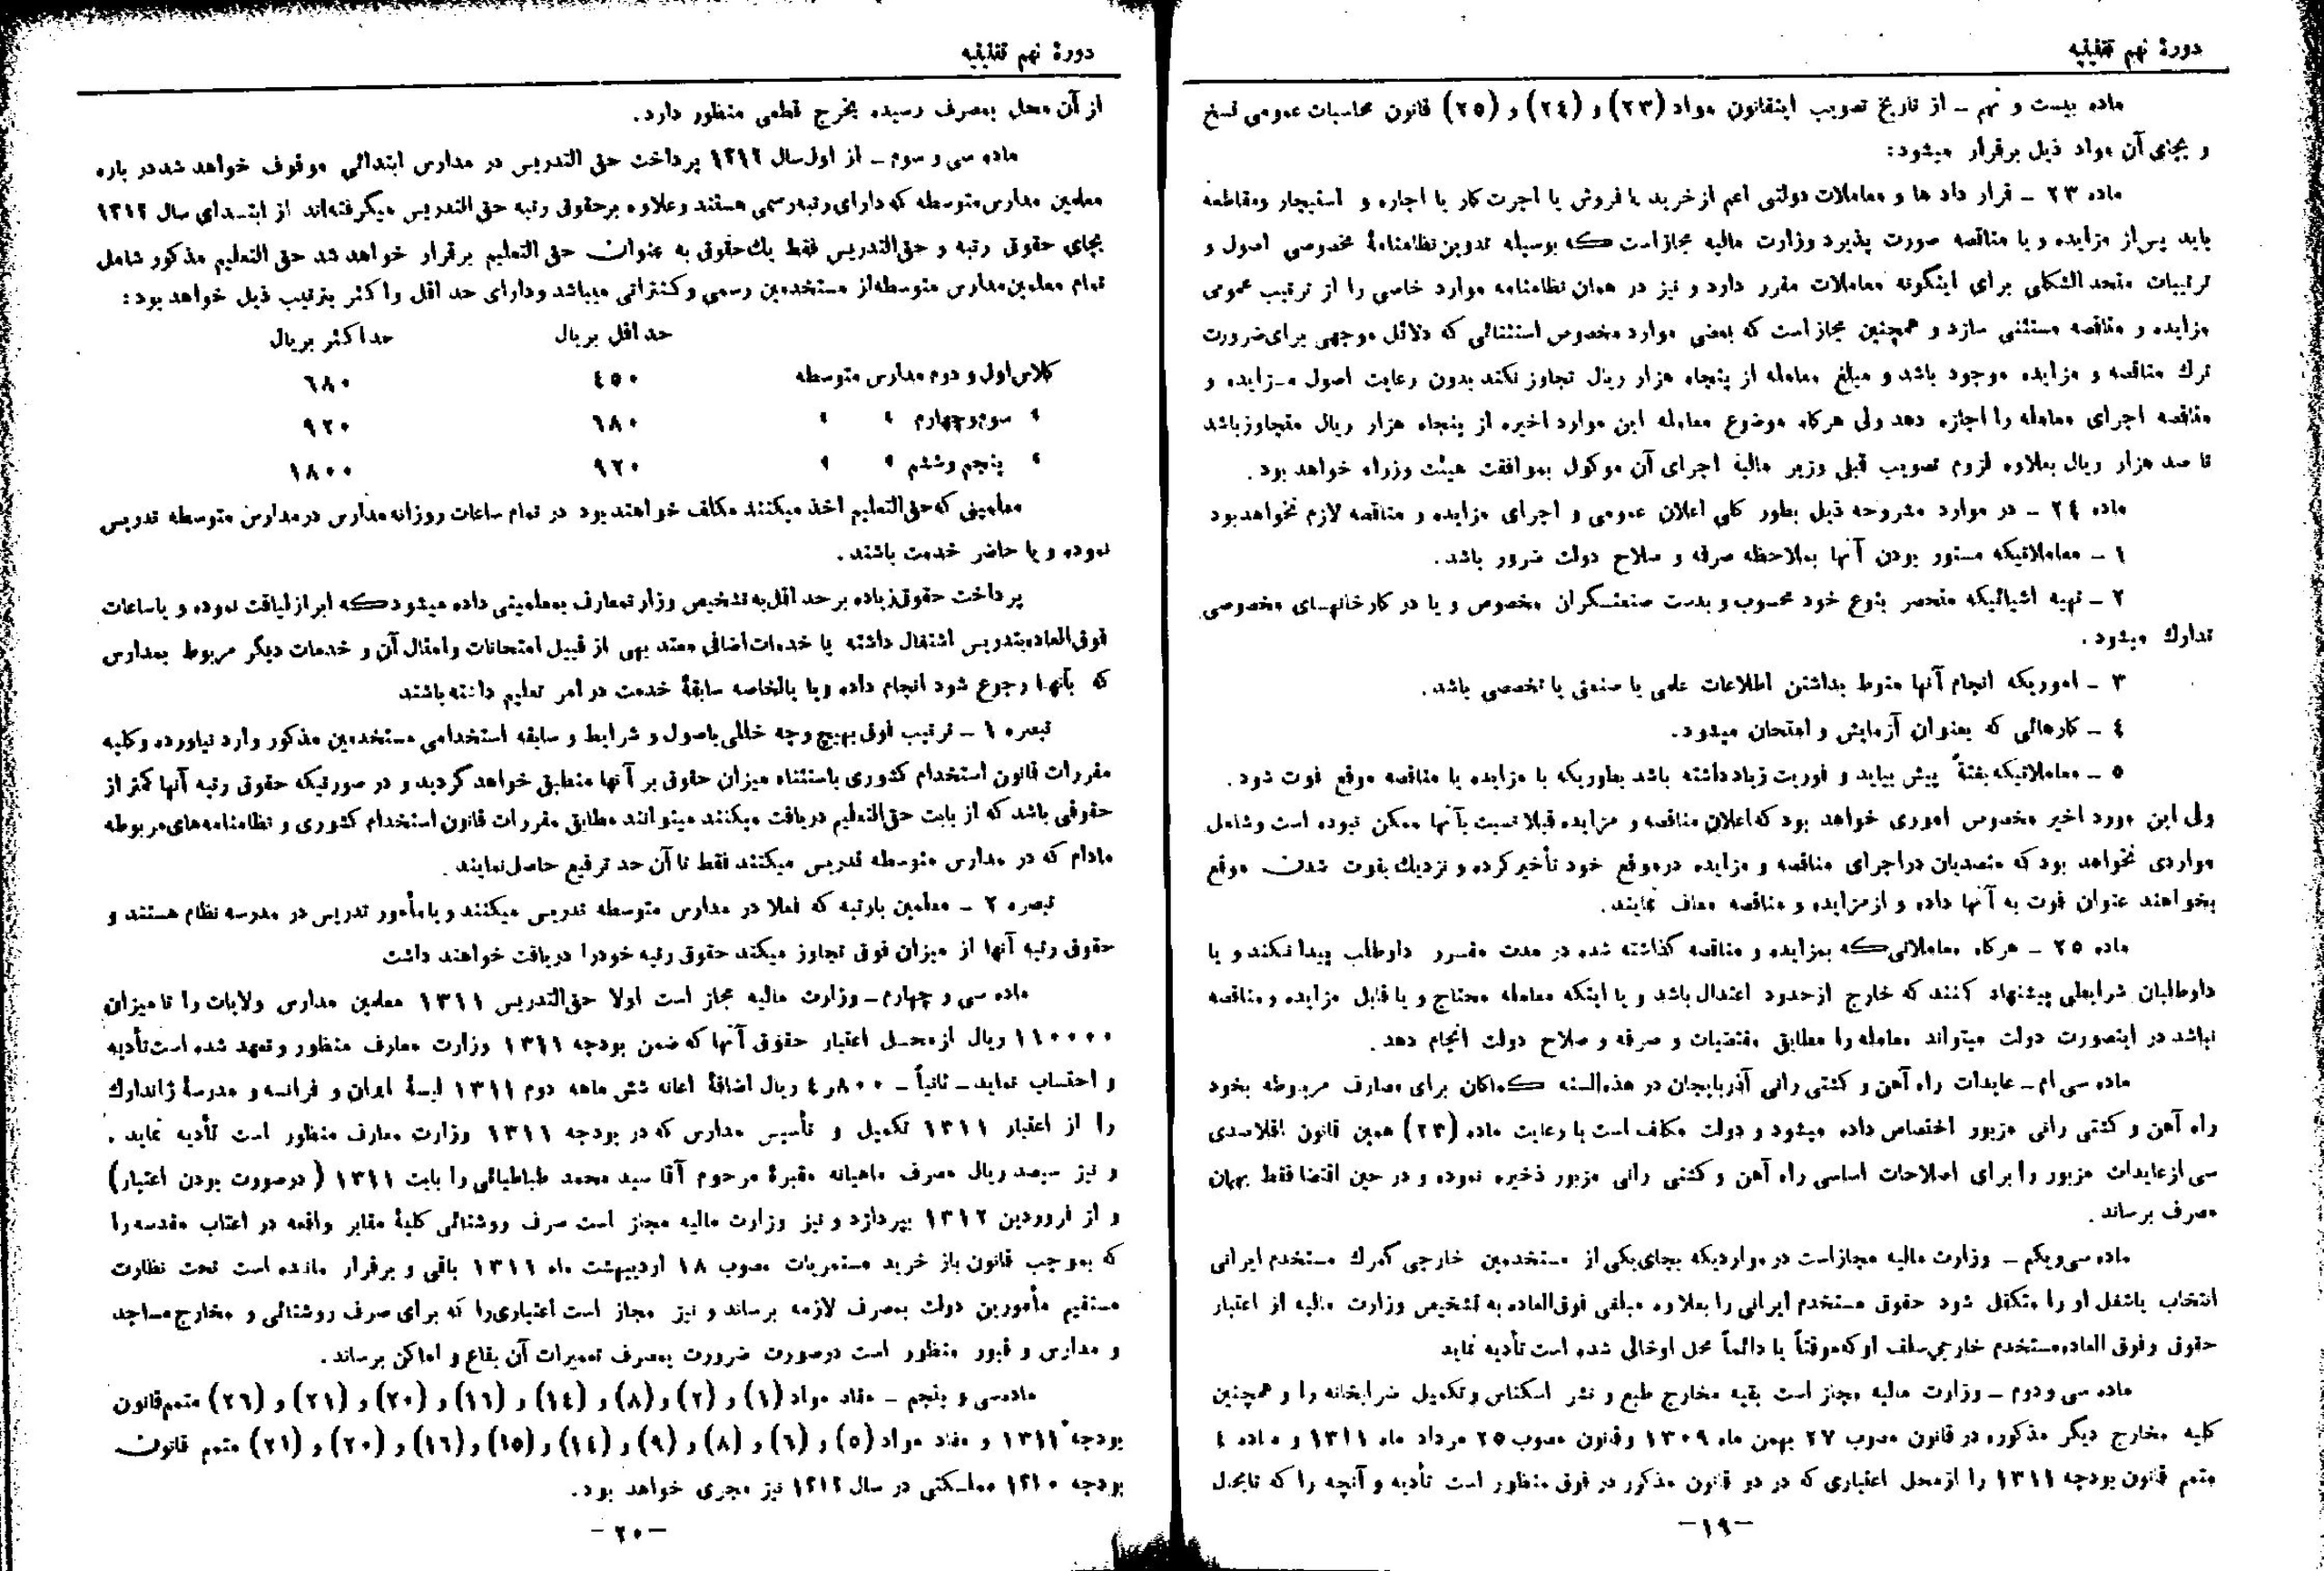 دورهٔ نهم تقنینیه
ماده بیست و نهم ـ از تاریخ تصویب اینقانون مواد (۲۳) و (۲٤) و (۲۵) قانون محاسبات عمومی نسخ
و بجای آن مواد ذیل برقرار میشود:
ماده ۲۳ ـ قرار داد ها و معاملات دولتی اعم از خرید یا فروش یا اجرت کار یا اجاره و استیجار ومقاطعه
باید پس‌از مزایده و یا مناقصه صورت پذیرد وزارت مالیه مجاز است که بوسیله تدوین نظامنامهٔ مخصوصی اصول و
ترتیبات متحد الشکلی برای اینگونه معاملات مقرر دارد و نیز در همان نظامنامه موارد خاصی را از ترتیب عمومی
مزایده و مناقصه مستثنی سازد و همچنین مجاز است که بعضی موارد مخصوص استثنائی که دلائل موجهی برای ضرورت
ترك مناقصه و مزایده موجود باشد و مبلغ معامله از پنجاه هزار ریال تجاوز نکند بدون رعایت اصول مـزایده و
مناقصه اجرای معامله را اجازه دهد ولی هرگاه موضوع معامله این موارد اخیره از پنجاه هزار ریال متجاوز باشد
تا صد هزار ریال بعلاوه لزوم تصویب قبلی وزیر مالیه اجرای آن موکول بموافقت هیئت وزراء خواهد بود .
ماده ۲٤ ـ در موارد مشروحه ذیل بطور کلی اعلان عمومی و اجرای مزایده و مناقصه لازم نخواهد بود
۱ ـ معاملاتیکه مستور بودن آنها بملاحظه صرفه و صلاح دولت ضرور باشد .
۲ ـ تهیه اشیائیکه منحصر بنوع خود محسوب و بدست صنعتـگران مخصوص و یا در کارخانهـای مخصوصی
تدارك میشود .
۳ ـ اموریکه انجام آنها منوط بداشتن اطلاعات علمی یا صنعتی یا تخصصی باشد .
٤ ـ کارهائی که بعنوان آزمایش و امتحان میشود .
۵ ـ معاملاتیکه بغتةً پیش بیاید و فوریت زیاد داشته باشد بطوریکه با مزایده یا مناقصه موقع فوت شود .
ولی این مورد اخیر مخصوص اموری خواهد بود که اعلان مناقصه و مزایده قبلا نسبت بآنها ممکن نبوده است و شامل
مواردی نخواهد بود که متصدیان در اجرای مناقصه و مزایده در موقع خود تأخیر کرده و نزدیك بفوت شدن موقع
بخواهند عنوان فوت به آنها داده و از مزایده و مناقصه معاف نمایند .
ماده ۲۵ ـ هرگاه معاملاتی که بمزایده و مناقصه گذاشته شده در مدت مقـرر داوطلب پیدا نکند و یا
داوطلبان شرایطی پیشنهاد کنند که خارج از حدود اعتدال باشد و یا اینکه معامله محتاج و یا قابل مزایده و مناقصه
نباشد در اینصورت دولت میتواند معامله را مطابق مقتضیات و صرفه و صلاح دولت انجام دهد .
ماده سی ام ـ عایدات راه آهن و کشتی رانی آذربایجان در هذه‌السنه کماکان برای مصارف مربوطه بخود
راه آهن و کشتی رانی مزبور اختصاص داده میشود و دولت مکلف است با رعایت ماده (۲۳) همین قانون اقلا صدی
سی از عایدات مزبور را برای اصلاحات اساسی راه آهن و کشتی رانی مزبور ذخیره نموده و در حین اقتضا فقط بهمان
مصرف برساند .
ماده سی‌ویکم ـ وزارت مالیه مجاز است در مواردیکه بجای یکی از مستخدمین خارجی گمرك مستخدم ایرانی
انتخاب یا شغل او را متکفل شود حقوق مستخدم ایرانی را بعلاوه مبلغی فوق‌العاده به تشخیص وزارت مالیه از اعتبار
حقوق و فوق العاده مستخدم خارجی سلف او که موقتاً یا دائماً محل او خالی شده است تأدیه نماید
ماده سی و دوم ـ وزارت مالیه مجاز است بقیه مخارج طبع و نشر اسکناس و تکمیل ضرابخانه را و همچنین
کلیه مخارج دیگر مذکوره در قانون مصوب ۲۷ بهمن ماه ۱۳۰۹ و قانون مصوب ۲۵ مرداد ماه ۱۳۱۱ و ماده ٤
متمم قانون بودجه ۱۳۱۱ را از محل اعتباری که در دو قانون مذکور در فوق منظور است تأدیه و آنچه را که تابحال
ـ ۱۹ ـ
دورهٔ نهم تقنینیه
از آن محل بمصرف رسیده بخرج قطعی منظور دارد .
ماده سی و سوم ـ از اول سال ۱۳۱۲ پرداخت حق التدریس در مدارس ابتدائی موقوف خواهد شد در باره
معلمین مدارس متوسطه که دارای رتبه رسمی هستند و علاوه بر حقوق رتبه حق التدریس میگرفته‌اند از ابتـدای سال ۱۳۱۲
بجای حقوق رتبه و حق‌التدریس فقط یك حقوق به عنوان حق التعلیم برقرار خواهد شد حق التعلیم مذکور شامل
تمام معلمین مدارس متوسطه از مستخدمین رسمی و کنتراتی میباشد و دارای حد اقل و اکثر بترتیب ذیل خواهد بود :
حد اقل بریال حد اکثر بریال
کلاس اول و دوم مدارس متوسطه ٤۵۰ ٦۸۰
« سوم‌وچهارم « « ٦۸۰ ۹۲۰
« پنجم و ششم « « ۹۲۰ ۱۸۰۰
معلمینی که حق‌التعلیم اخذ میکنند مکلف خواهند بود در تمام ساعات روزانه مدارس در مدارس متوسطه تدریس
نموده و یا حاضر خدمت باشند .
پرداخت حقوق زیاده بر حد اقل به تشخیص وزارت معارف بمعلمینی داده میشود که ابراز لیاقت نموده و یا ساعات
فوق‌العاده بتدریس اشتغال داشته یا خدمات اضافی معتد بهی از قبیل امتحانات و امثال آن و خدمات دیگر مربوط بمدارس
که بآنها رجوع شود انجام داده و یا بالخاصه سابقهٔ خدمت در امر تعلیم داشته باشند
تبصره ۱ ـ ترتیب فوق بهیچ وجه خللی باصول و شرایط و سابقه استخدامی مستخدمین مذکور وارد نیاورده و کلیه
مقررات قانون استخدام کشوری باستثناء میزان حقوق بر آنها منطبق خواهد گردید و در صورتیکه حقوق رتبه آنها کمتر از
حقوقی باشد که از بابت حق‌التعلیم دریافت میکنند میتوانند مطابق مقررات قانون استخدام کشوری و نظامنامه‌های مربوطه
مادام که در مدارس متوسطه تدریس میکنند فقط تا آن حد ترفیع حاصل نمایند .
تبصره ۲ ـ معلمین با رتبه که فعلا در مدارس متوسطه تدریس میکنند و یا مأمور تدریس در مدرسه نظام هستند و
حقوق رتبه آنها از میزان فوق تجاوز میکند حقوق رتبه خود را دریافت خواهند داشت
ماده سی و چهارم ـ وزارت مالیه مجاز است اولا حق‌التدریس ۱۳۱۱ معلمین مدارس ولایات را تا میزان
۱۱۰۰۰۰ ریال از محـل اعتبار حقوق آنها که ضمن بودجه ۱۳۱۱ وزارت معارف منظور و تعهد شده است تأدیه
و احتساب نماید ـ ثانیاً ـ ٤٫۸۰۰ ریال اضافهٔ اعانه شش ماهه دوم ۱۳۱۱ لیسهٔ ایران و فرانسه و مدرسهٔ ژاندارك
را از اعتبار ۱۳۱۱ تکمیل و تأسیس مدارس که در بودجه ۱۳۱۱ وزارت معارف منظور است تأدیه نماید .
و نیز سیصد ریال مصرف ماهیانه مقبرهٔ مرحوم آقا سید محمد طباطبائی را بابت ۱۳۱۱ ( در صورت بودن اعتبار )
و از فروردین ۱۳۱۲ بپردازد و نیز وزارت مالیه مجاز است صرف روشنائی کلیهٔ مقابر واقعه در اعتاب مقدسه را
که بموجب قانون باز خرید مستمریات مصوب ۱۸ اردیبهشت ماه ۱۳۱۱ باقی و برقرار مانده است تحت نظارت
مستقیم مأمورین دولت بمصرف لازمه برساند و نیز مجاز است اعتباری را که برای صرف روشنائی و مخارج مساجد
و مدارس و قبور منظور است در صورت ضرورت بمصرف تعمیرات آن بقاع و اماکن برساند .
ماده سی و پنجم ـ مفاد مواد (۱) و (۲) و (۸) و (۱٤) و (۱٦) و (۲۰) و (۲۱) و (۲٦) متمم قانون
بودجه ۱۳۱۱ و مفاد مواد (۵) و (٦) و (۸) و (۹) و (۱٤) و (۱۵) و (۱٦) و (۲۰) و (۲۱) متمم قانون
بودجه ۱۳۱۰ مملـکتی در سال ۱۳۱۲ نیز مجری خواهد بود .
ـ ۲۰ ـ